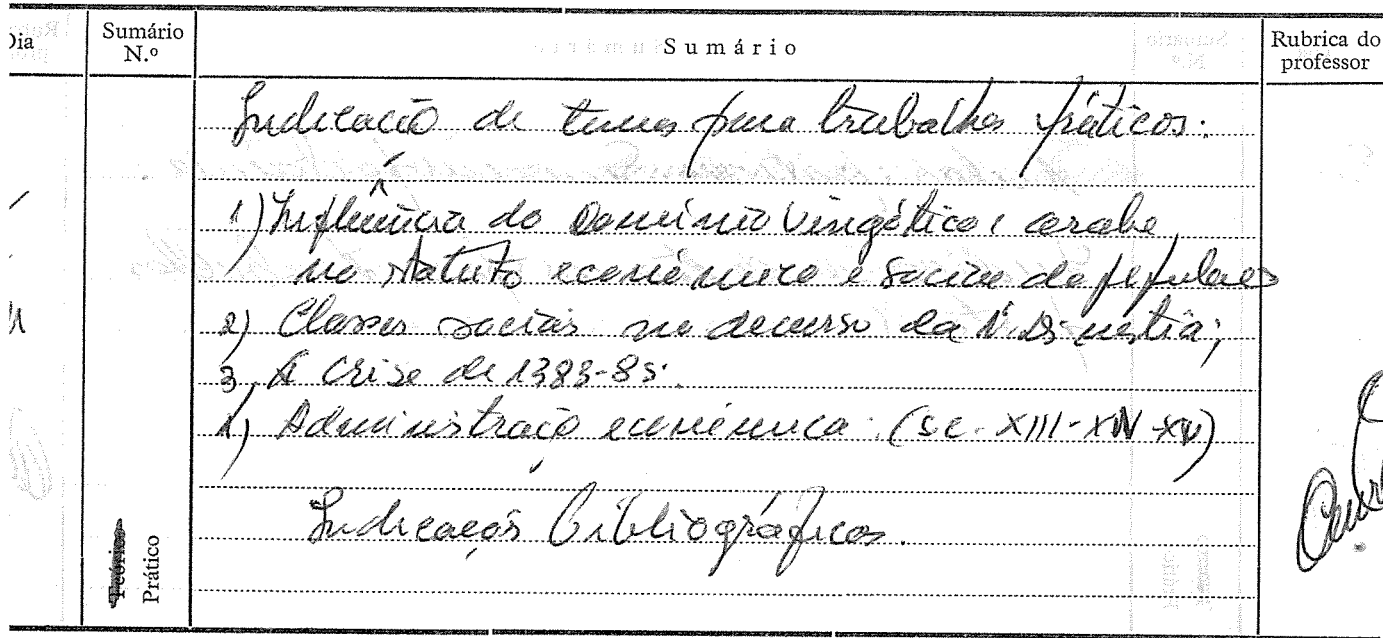 Dia
Sumário N.º
Sumário
Rubrica do professor
Indicação de temas para trabalhos práticos:
1) Influência do Domínio Visigótico e árabe
no statuto económico e social da populações
2) Classes sociais no decurso da 1ª Dinastia;
3) A Crise de 1383-85.
4) Administração económica (séc. XIII-XIV-XV)
Indicações bibliográficas.
Teórico
Prático